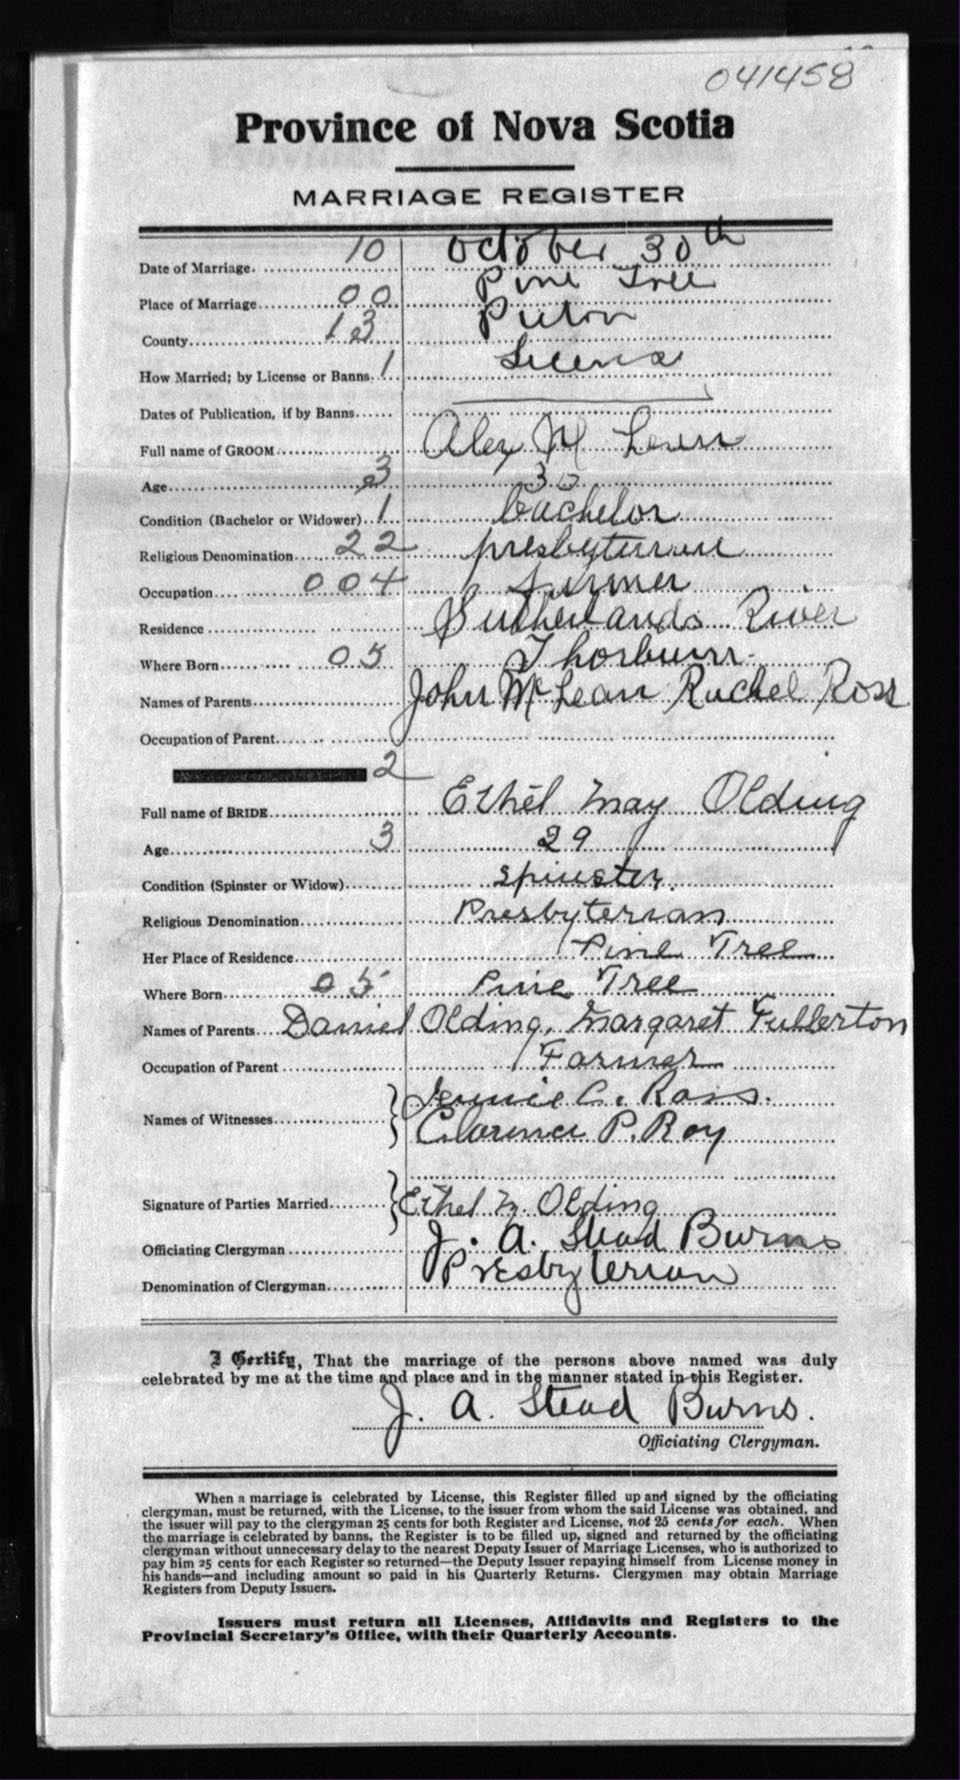 041458
Province of Nova Scotia
MARRIAGE REGISTER
Date of Marriage. 10 October 30th
Place of Marriage 00 Pine Tree
County 13 Pictou
How Married; by License or Banns. 1 License
Dates of Publication, if by Banns
Full name of GROOM Alex M Lean
Age 3 30
Condition (Bachelor or Widower) 1 Bachelor
Religious Denomination 22 presbyterian
Occupation 004 Farmer
Residence Sutherlands River
Where Born 05 Thorburn
Names of Parents John McLean Rachel Ross
Occupation of Parent
2
Full name of BRIDE Ethel May Olding
Age 3 29
Condition (Spinster or Widow) spinster.
Religious Denomination Presbyterian
Her Place of Residence Pine Tree
Where Born 05 Pine Tree
Names of Parents Daniel Olding, Margaret Fullerton
Occupation of Parent Farmer
Jennie C. Ross.
Names of Witnesses
Clarence P. Roy
Signature of Parties Married Ethel M. Olding
Officiating Clergyman J. A. Stead Burns
Denomination of Clergyman Presbyterian
I Certify, That the marriage of the persons above named was duly
celebrated by me at the time and place and in the manner stated in this Register.
J. A. Stead Burns.
Officiating Clergyman.
When a marriage is celebrated by License, this Register filled up and signed by the officiating
clergyman, must be returned, with the License, to the issuer from whom the said License was obtained, and
the issuer will pay to the clergyman 25 cents for both Register and License, not 25 cents for each. When
the marriage is celebrated by banns, the Register is to be filled up, signed and returned by the officiating
clergyman without unnecessary delay to the nearest Deputy Issuer of Marriage Licenses, who is authorized to
pay him 25 cents for each Register so returned—the Deputy Issuer repaying himself from License money in
his hands—and including amount so paid in his Quarterly Returns. Clergymen may obtain Marriage
Registers from Deputy Issuers.
Issuers must return all Licenses, Affidavits and Registers to the
Provincial Secretary's Office, with their Quarterly Accounts.